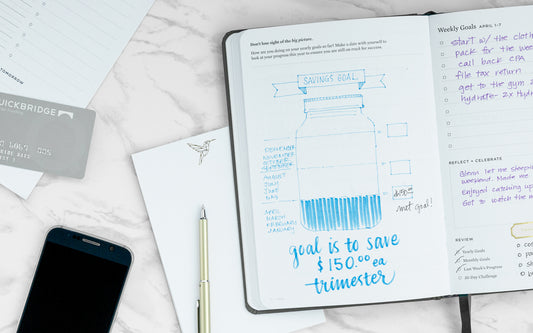 TOMORROW
UICKBRIDGE
Don't lose sight of the big picture.
How are you doing on your yearly goals so far? Make a date with yourself to
look at your progress this year to ensure you are still on track for success.
SAVINGS GOAL
DECEMBER
NOVEMBER
OCTOBER
SEPTEMBER
AUGUST
JULY
JUNE
MAY
APRIL
MARCH
FEBRUARY
JANUARY
met goal!
goal is to save
$150.00 ea
trimester
Weekly Goals APRIL 1-7
start w/ the cloth
pack for the wee
call back CPA
file tax return
get to the gym
hydrate- 2x Hydr
REFLECT + CELEBRATE
Glenn let me sleep
weekend. Made me
Enjoyed catching up
Got to watch the
REVIEW
Yearly Goals
Monthly Goals
Last Week's Progress
30 Day Challenge